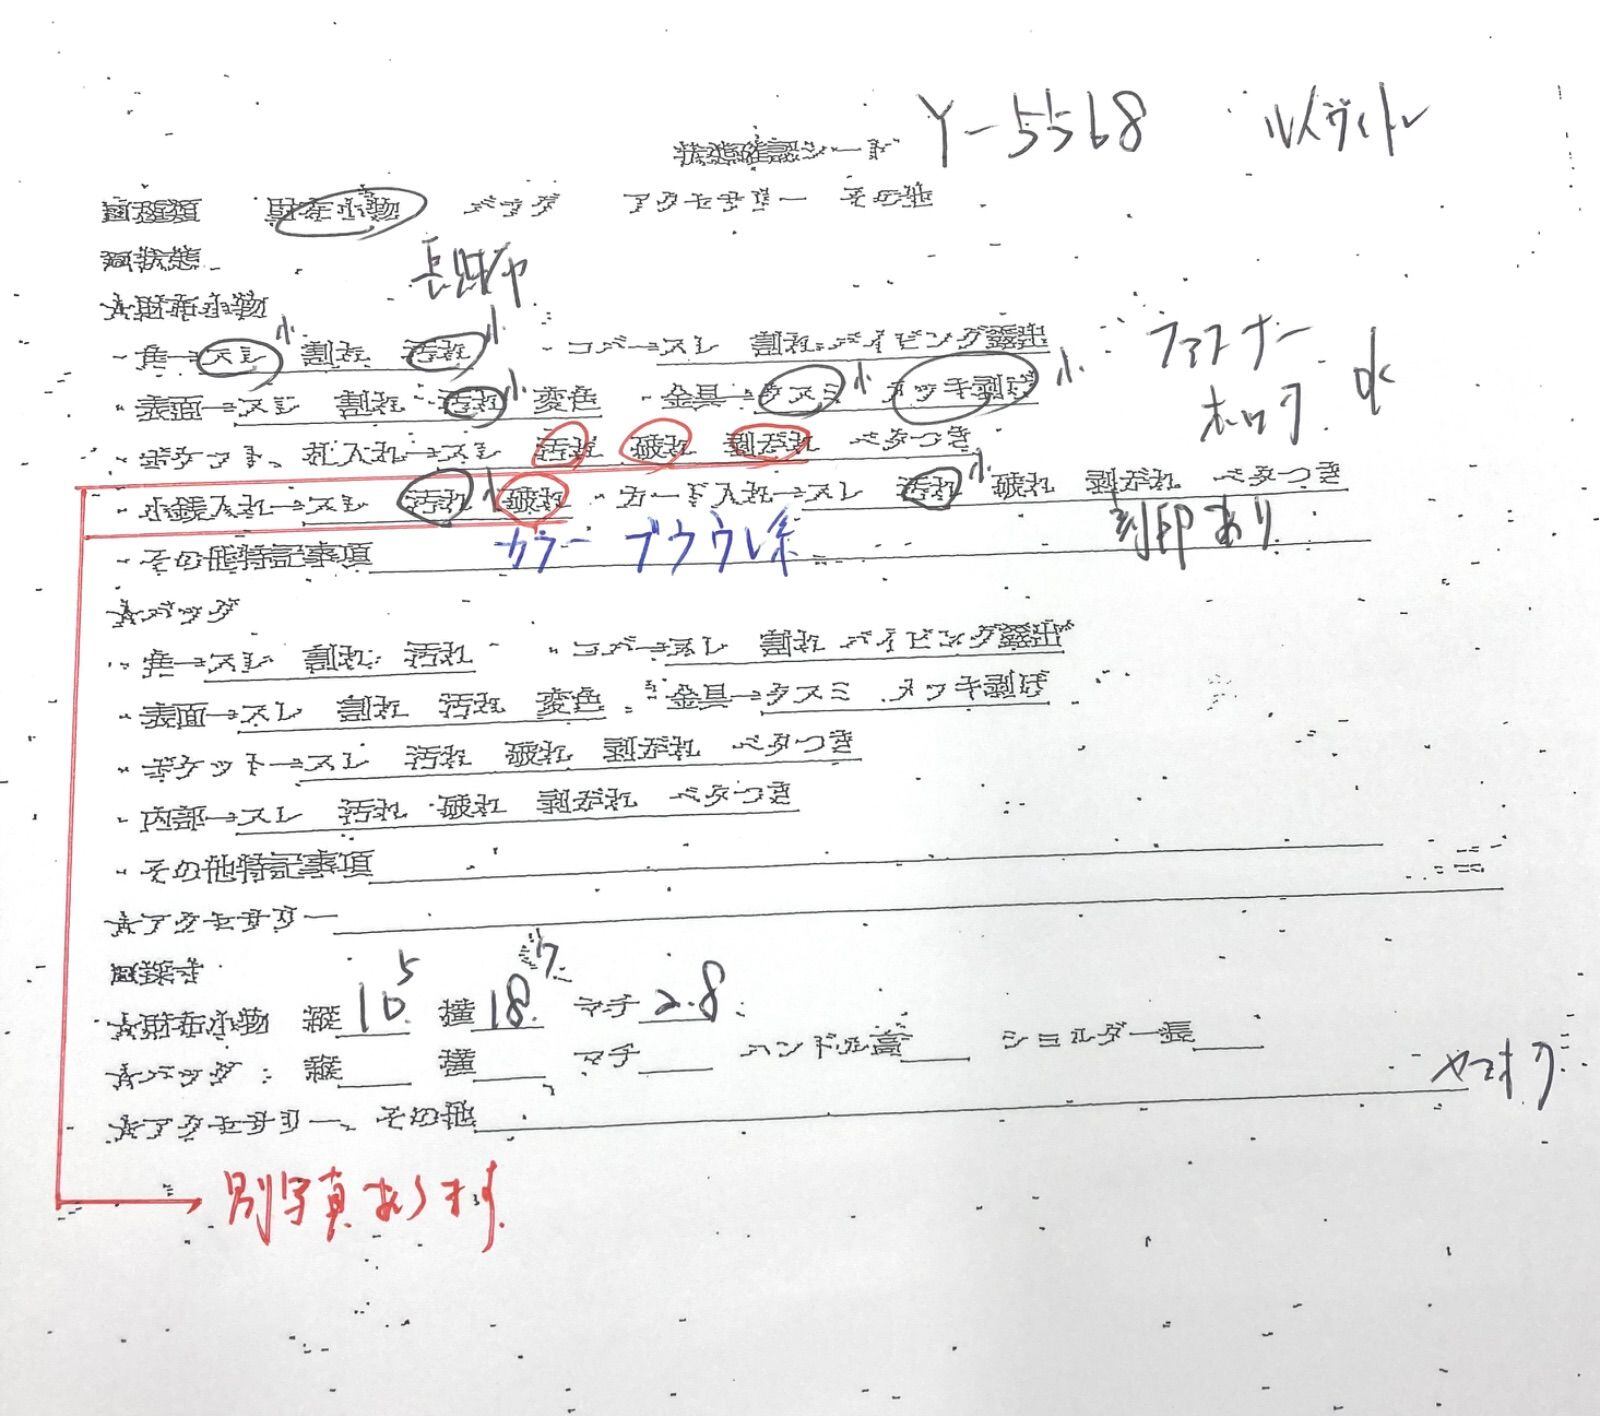 状態確認シート Y-5568 ルイヴィトン
■種類 財布小物 バッグ アクセサリー その他
■状態 長財布
★財布小物
・角→スレ小 割れ 汚れ小 ・コバ→スレ 割れ パイピング露出 ファスナー
・表面→スレ 割れ 汚れ小 変色 ・金具→クスミ小 メッキ剥げ小 ホック ok
・ポケット、札入れ→スレ 汚れ 破れ 剥がれ ベタつき
・小銭入れ→スレ 汚れ小 破れ ・カード入れ→スレ 汚れ小 破れ 剥がれ ベタつき
・その他特記事項 カラー ブラウン系 刻印あり
★バッグ
・角→スレ 割れ 汚れ ・コバ→スレ 割れ パイピング露出
・表面→スレ 割れ 汚れ 変色 ・金具→クスミ メッキ剥げ
・ポケット→スレ 汚れ 破れ 剥がれ ベタつき
・内部→スレ 汚れ 破れ 剥がれ ベタつき
・その他特記事項
★アクセサリー
■採寸
★財布小物 縦10.5 横18.7 マチ2.8
★バッグ 縦 横 マチ ハンドル高 ショルダー長
★アクセサリー、その他 ヤフオク
別写真あります